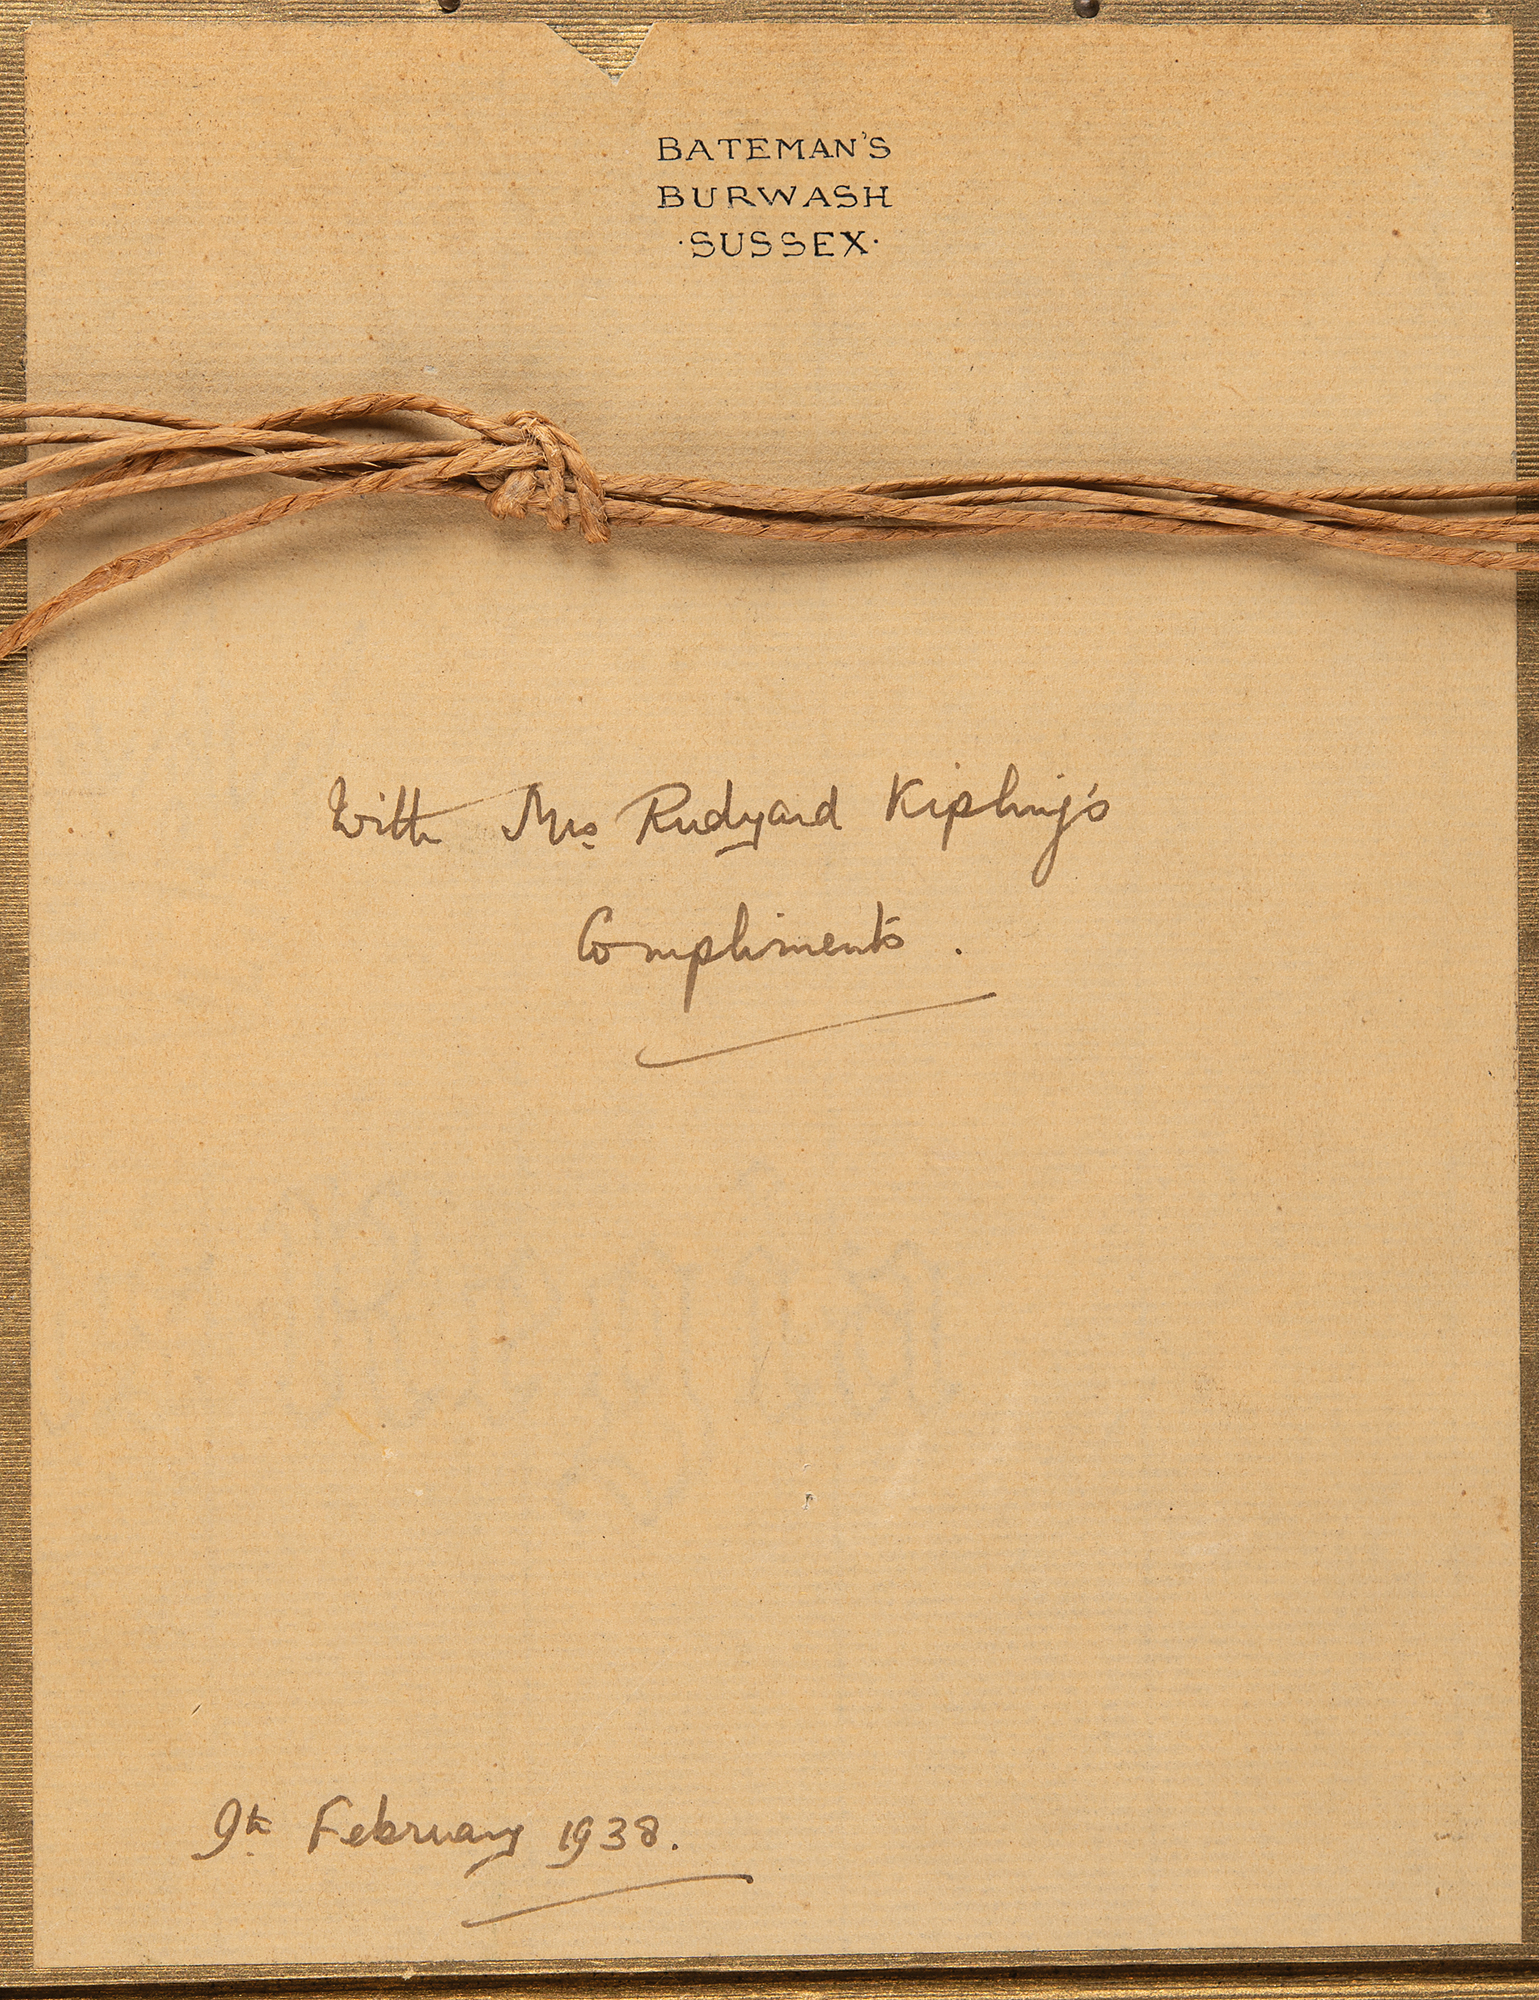 BATEMAN'S
BURWASH
·SUSSEX·
With Mrs. Rudyard Kipling's
Compliments.
9th February 1938.